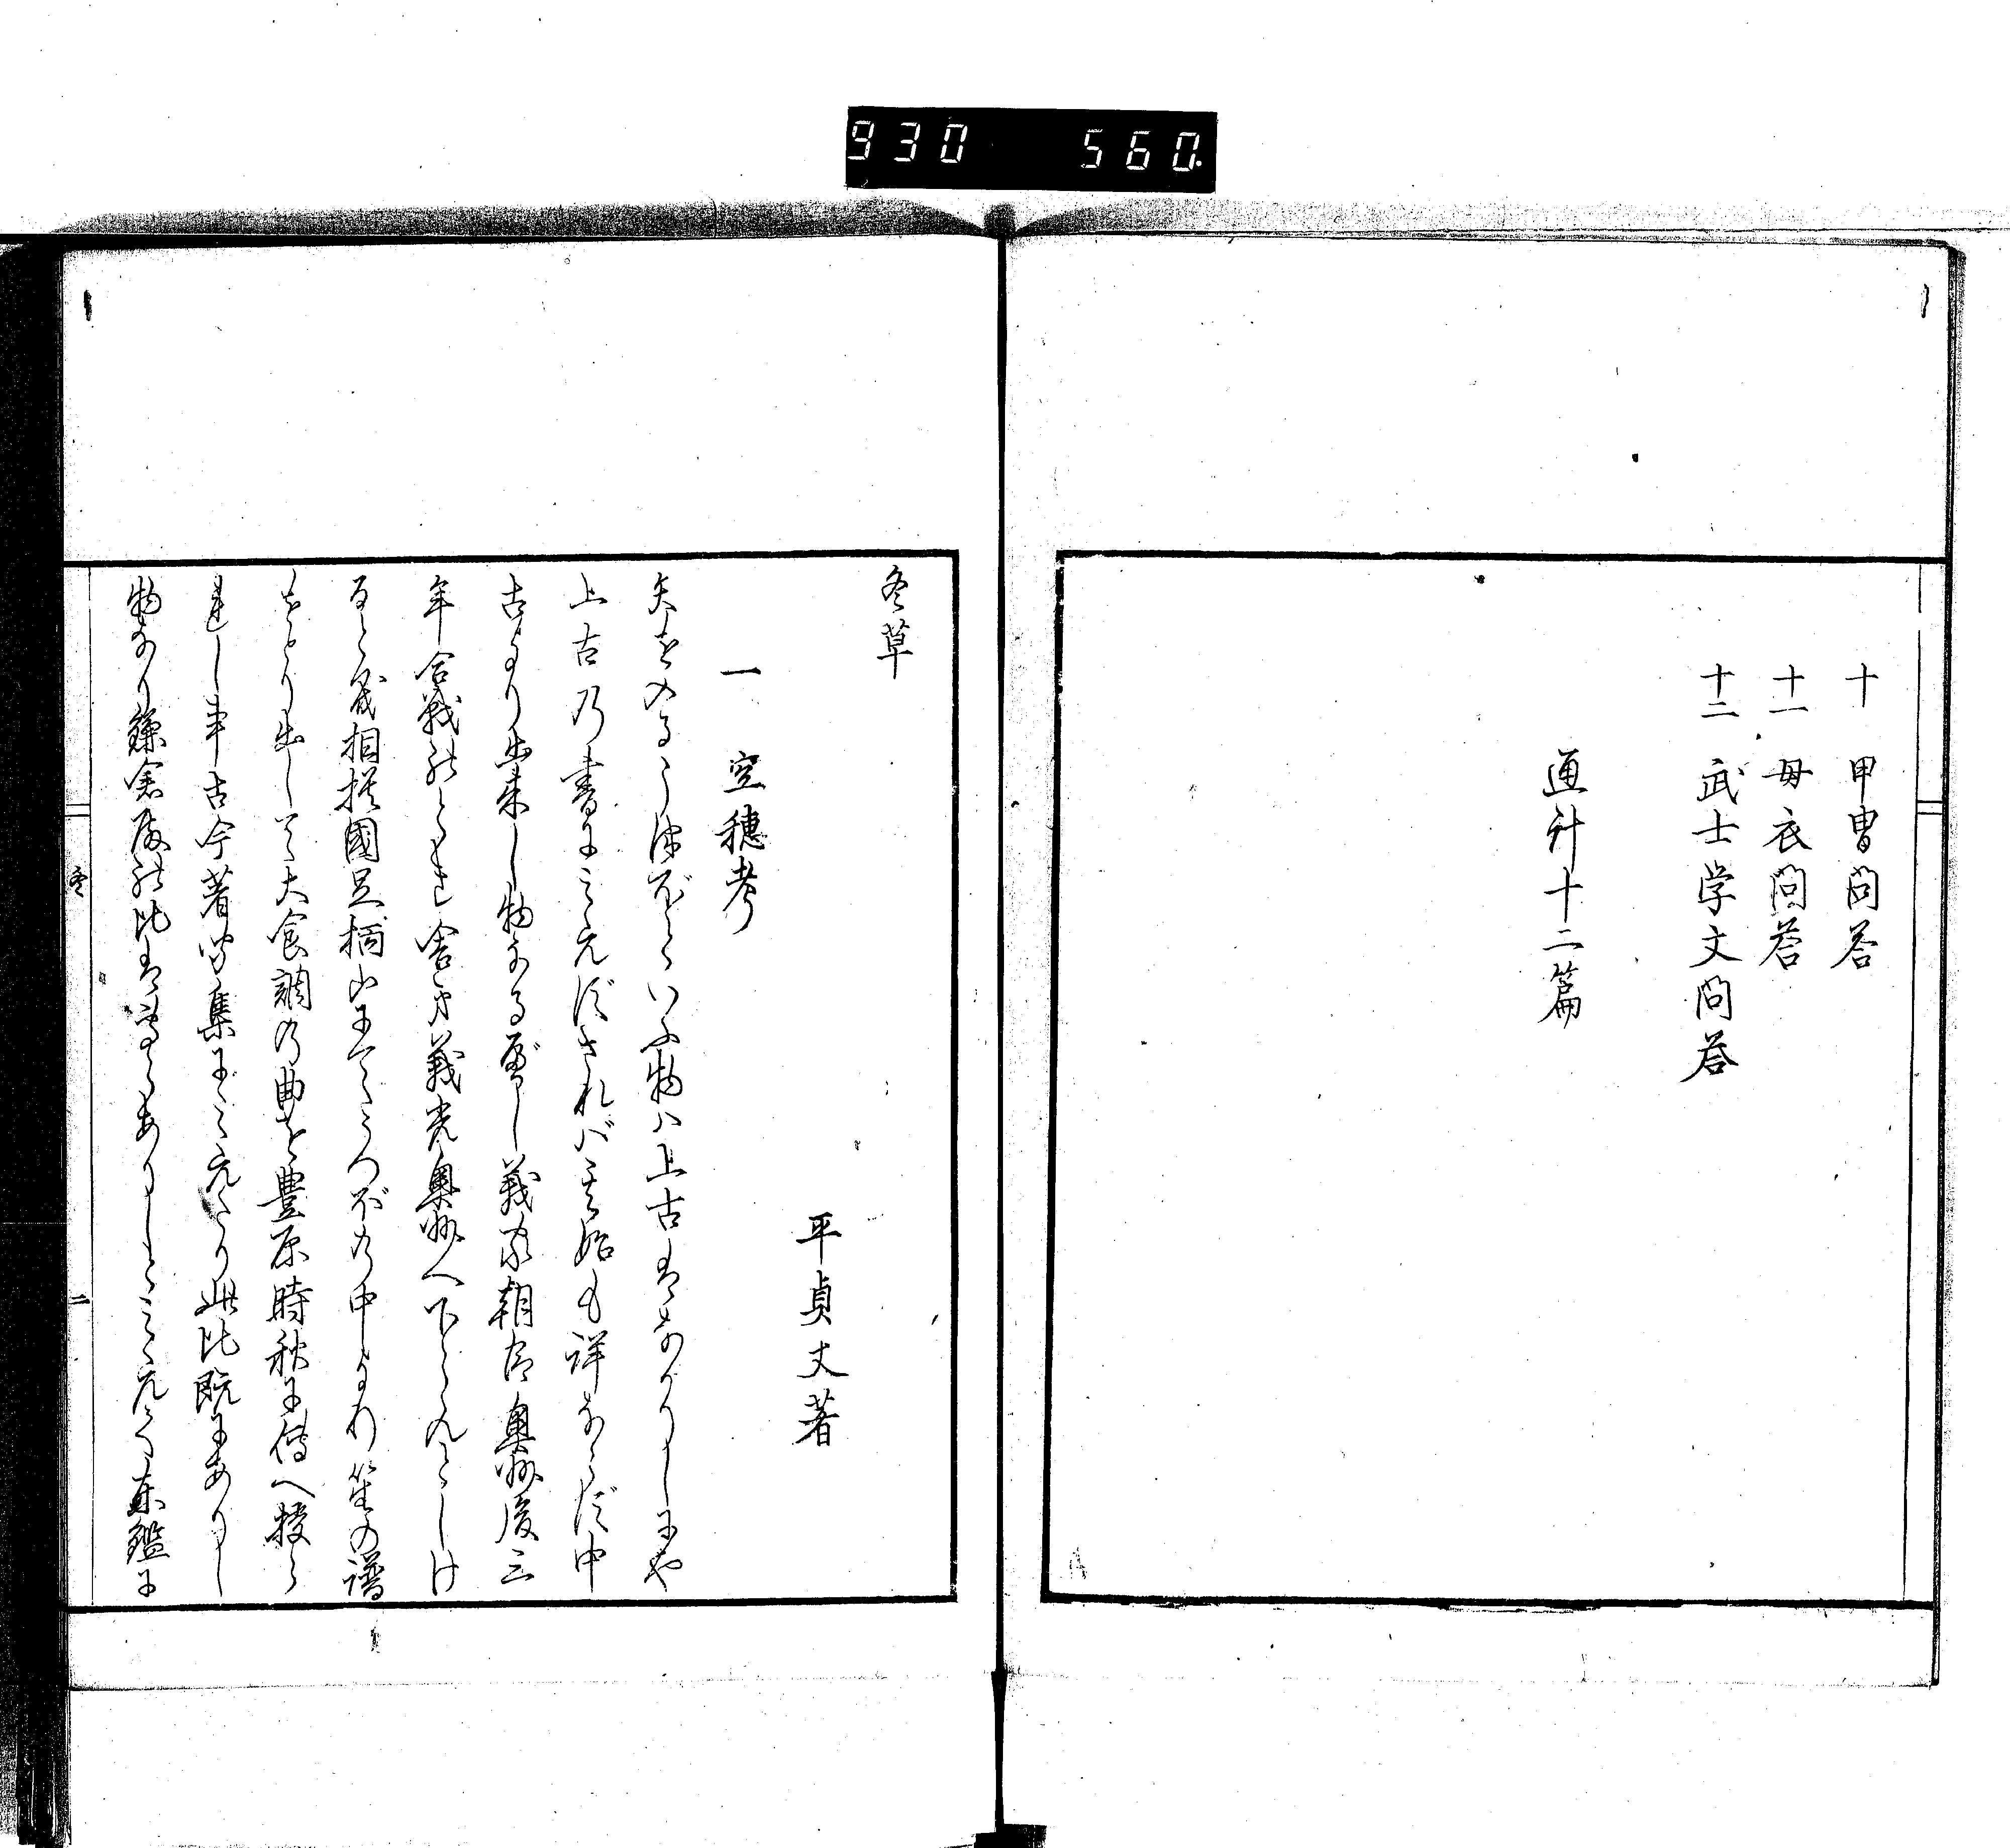 930 560.
十 甲冑問答
十一 母衣問答
十二 武士学文問答
通計十二篇
冬草
平貞丈著
一 空穂考
矢を入るうつぼといふ物ハ上古はなかりしにや
上古の書にみえずされバ其始も詳ならず中
古より出来し物なるべし義家朝臣奥州後三
年合戦のとき舎弟義光奥州へ下らんとしけ
るを 相摸國足柄山にてうつぼの中より笙の譜
をとり出して大食調の曲を豊原時秋に傳へ授ら
れし事古今著聞集にみえたり此比既にありし
物なり鎌倉殿の比は専らありしとみえて東鑑に
冬 二